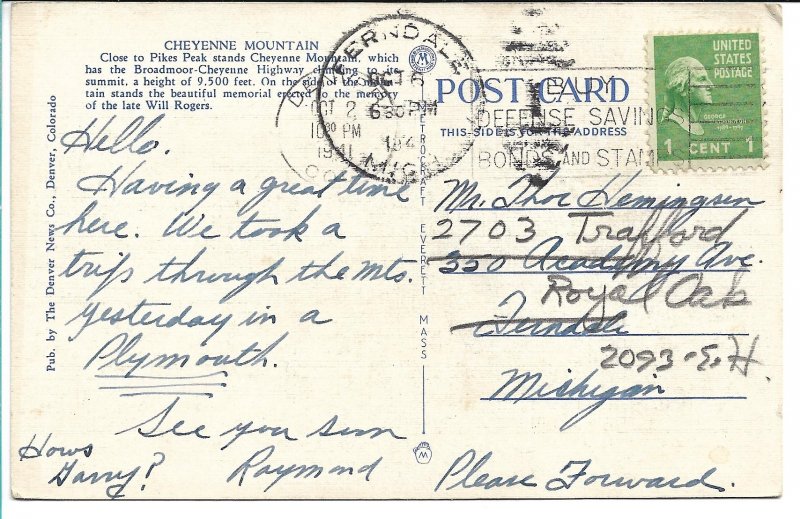 CHEYENNE MOUNTAIN
Close to Pikes Peak stands Cheyenne Mountain, which
has the Broadmoor-Cheyenne Highway climbing to its
summit, a height of 9,500 feet. On the side of the moun-
tain stands the beautiful memorial erected to the memory
of the late Will Rogers.
Pub. by The Denver News Co., Denver, Colorado
Hello.
Having a great time
here. We took a
trip through the Mts.
yesterday in a
Plymouth.
See you soon
Raymond
Hows
Garry?
FERNDALE
OCT
630 PM
194
MICH
OCT 2
1030 PM
1941
METROCRAFT EVERETT MASS
M
POST CARD
THIS SIDE IS FOR THE ADDRESS
BUY
DEFENSE SAVINGS
BONDS AND STAMPS
UNITED
STATES
POSTAGE
GEORGE
WASHINGTON
1789-1797
1 CENT 1
Mr. Thor Hemingsen
2703 Trafford
350 Academy Ave.
Royal Oak
Ferndale
2093-E.H.
Michigan
Please Forward.
M